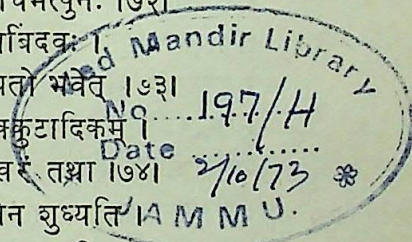 ।७२।
बिंदवः ।
यतो भवेत् ।७३।
क्कुटादिकम् ।
तथा ।७४।
न शुध्यति ।
Ved Mandir Library
No....197/H
Date ..........
2/10/73
JAMMU.